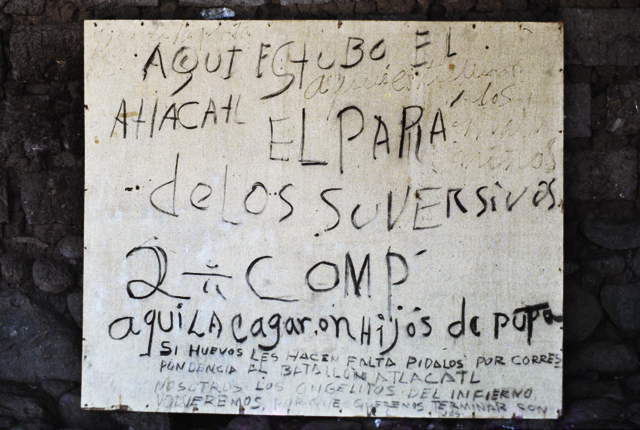 AQUI ESTUBO EL
ATLACATL
EL PAPÁ
de LOS SUVERSIVOS
2 COMP
aquí LA cagaron Hijos de puta
SI HUEVOS LES HACEN FALTA PIDALOS POR CORRES
PONDENCIA AL BATALLON ATLACATL
NOSOTROS LOS ANGELITOS DEL INFIERNO
VOLVEREMOS, PORQUE QUEREMOS TERMINAR CON